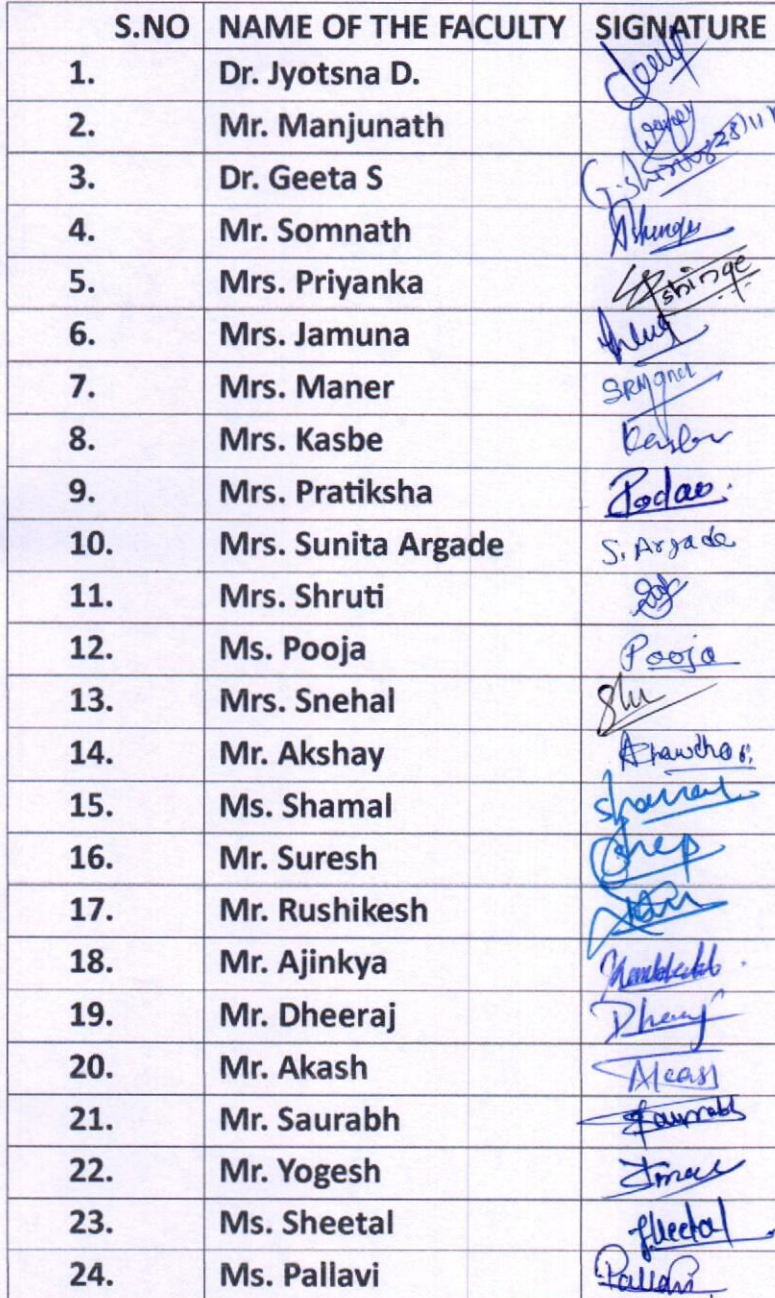 S.NO NAME OF THE FACULTY SIGNATURE
1. Dr. Jyotsna D.
2. Mr. Manjunath
3. Dr. Geeta S
4. Mr. Somnath
5. Mrs. Priyanka Shinge
6. Mrs. Jamuna
7. Mrs. Maner
8. Mrs. Kasbe
9. Mrs. Pratiksha
10. Mrs. Sunita Argade S. Argade
11. Mrs. Shruti
12. Ms. Pooja Pooja
13. Mrs. Snehal
14. Mr. Akshay
15. Ms. Shamal
16. Mr. Suresh
17. Mr. Rushikesh
18. Mr. Ajinkya
19. Mr. Dheeraj
20. Mr. Akash
21. Mr. Saurabh Saurabh
22. Mr. Yogesh
23. Ms. Sheetal Sheetal
24. Ms. Pallavi Pallavi